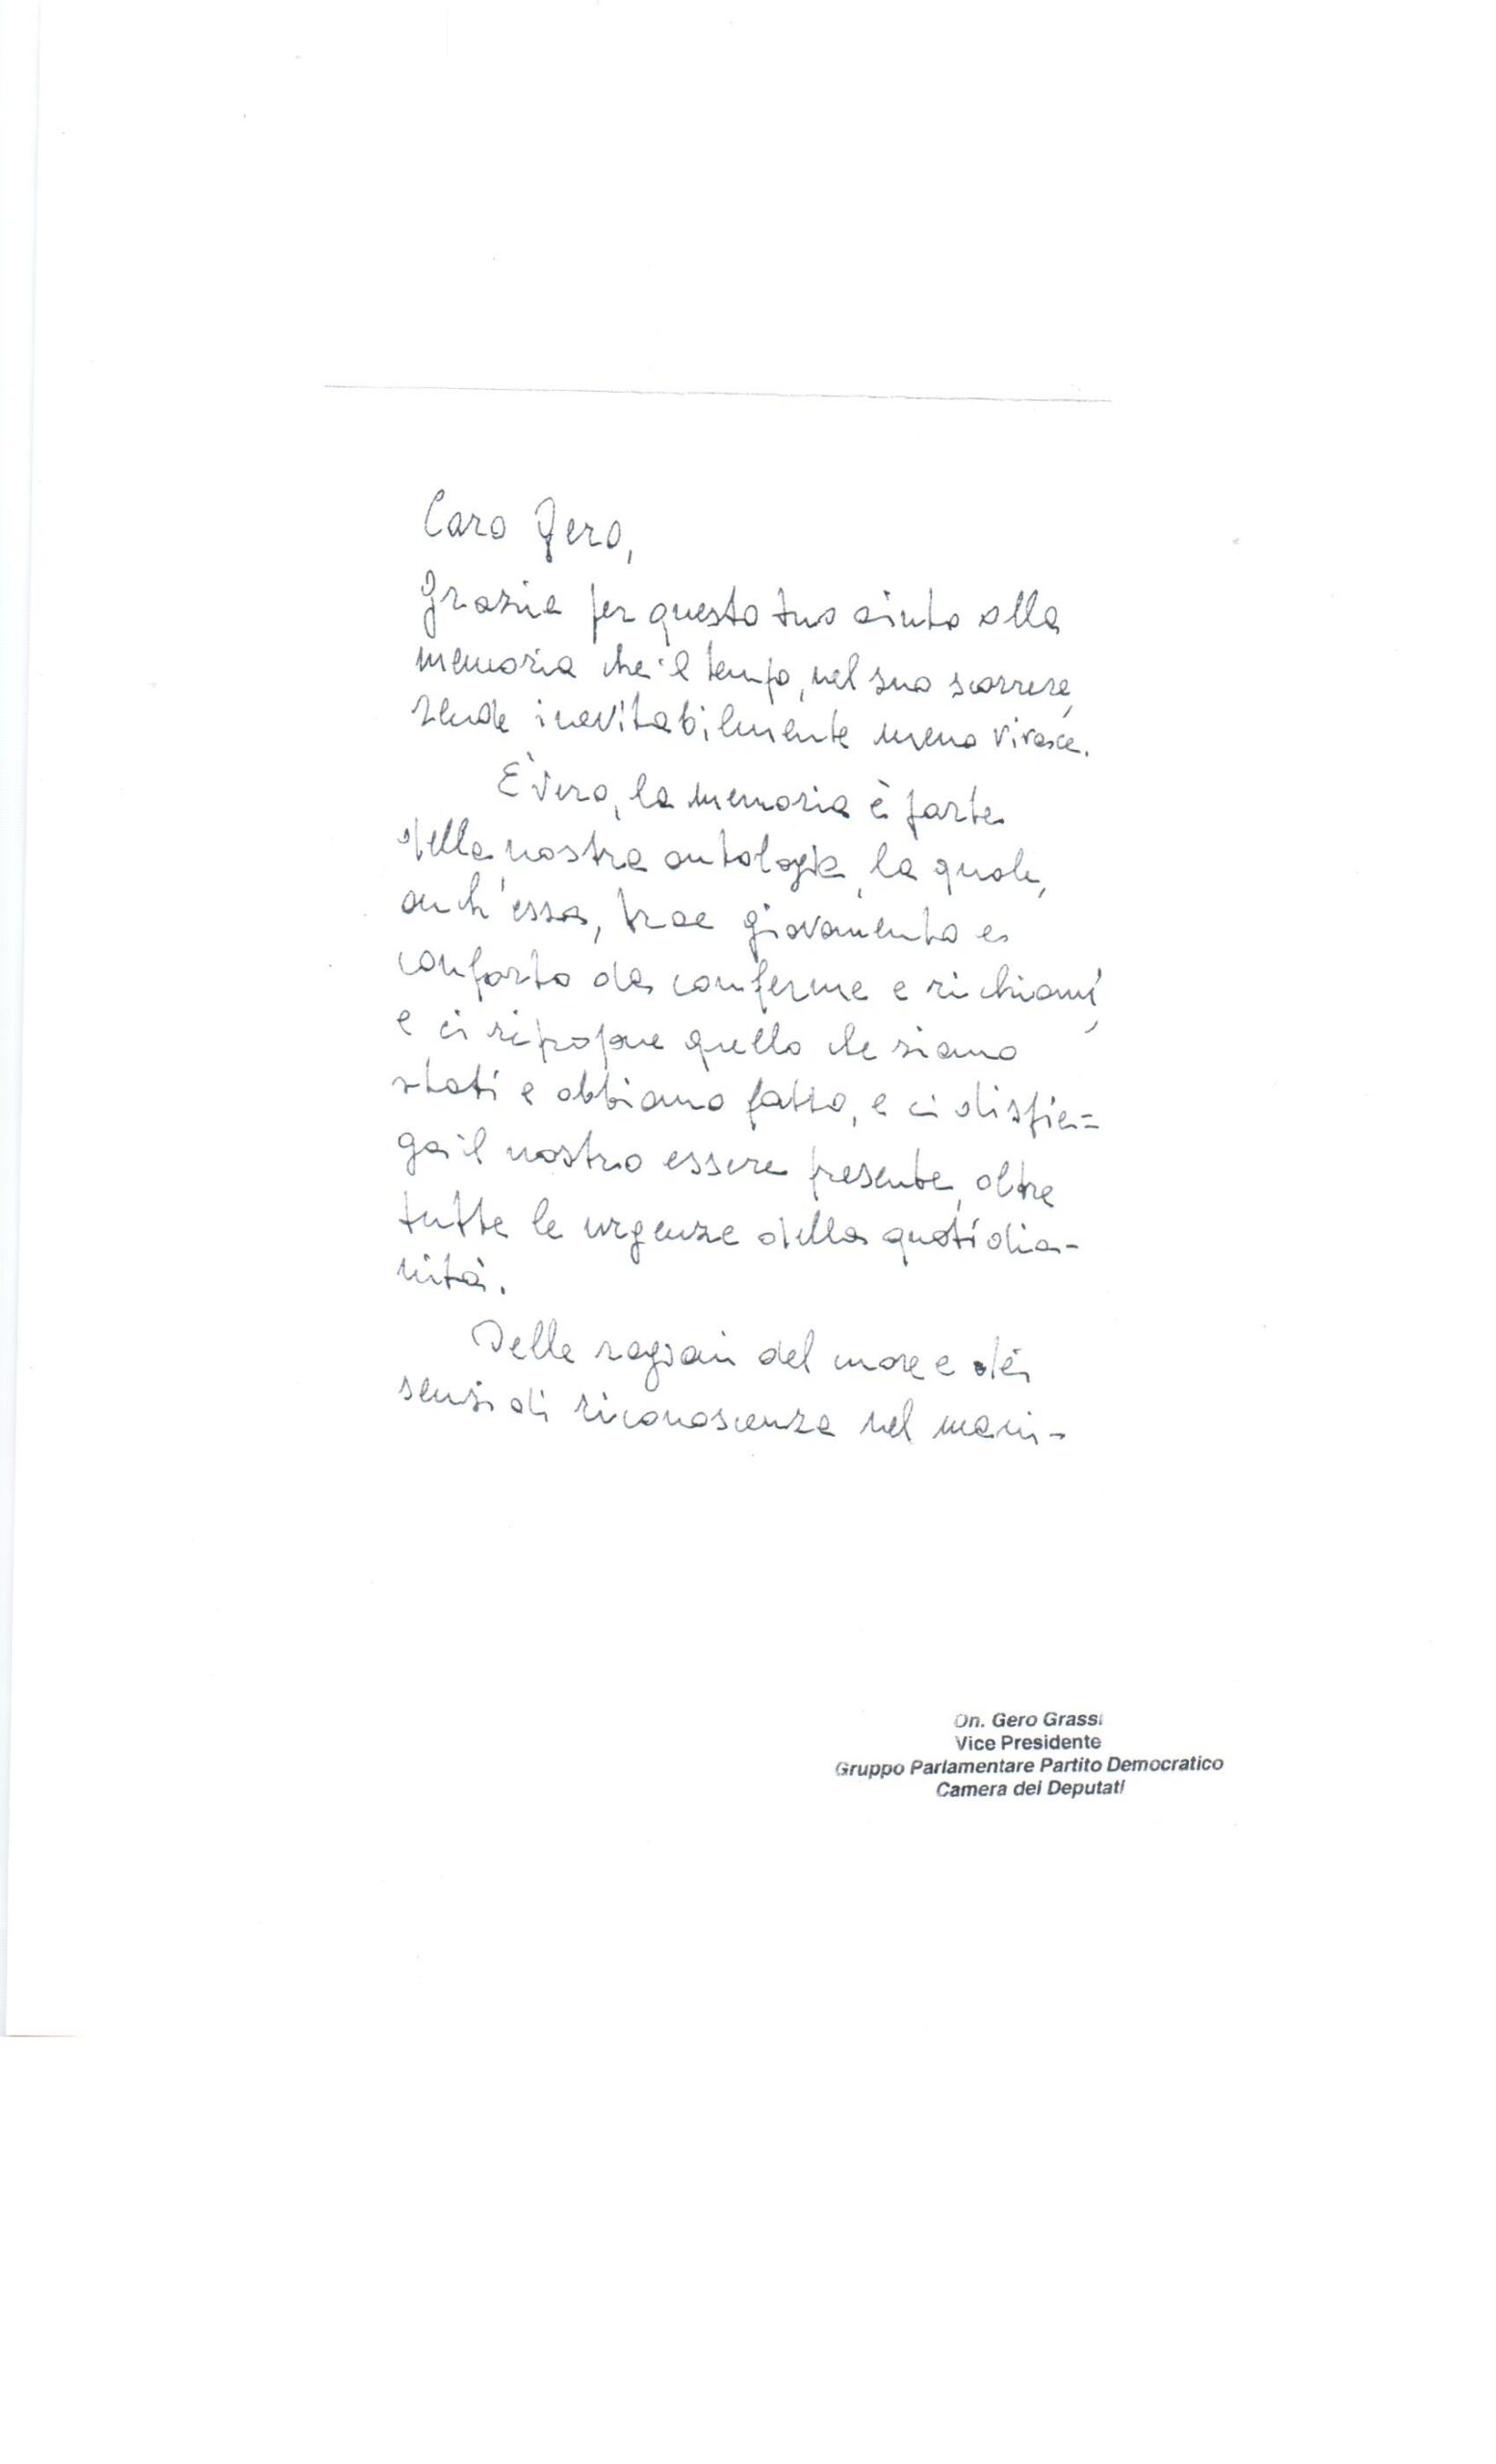 Caro Gero,
Grazie per questo tuo aiuto alla
memoria che il tempo, nel suo scorrere,
rende inevitabilmente meno vivace.
E' vero, la memoria è parte
della nostra ontologia, la quale,
anch'essa, trae giovamento e
conforto da conferme e richiami,
e ci ripropone quello che siamo
stati e abbiamo fatto, e ci dispie-
ga il nostro essere presente, oltre
tutte le urgenze della quotidia-
nità.
Delle ragioni del cuore e dei
sensi di riconoscenza nel mani-
On. Gero Grassi
Vice Presidente
Gruppo Parlamentare Partito Democratico
Camera dei Deputati